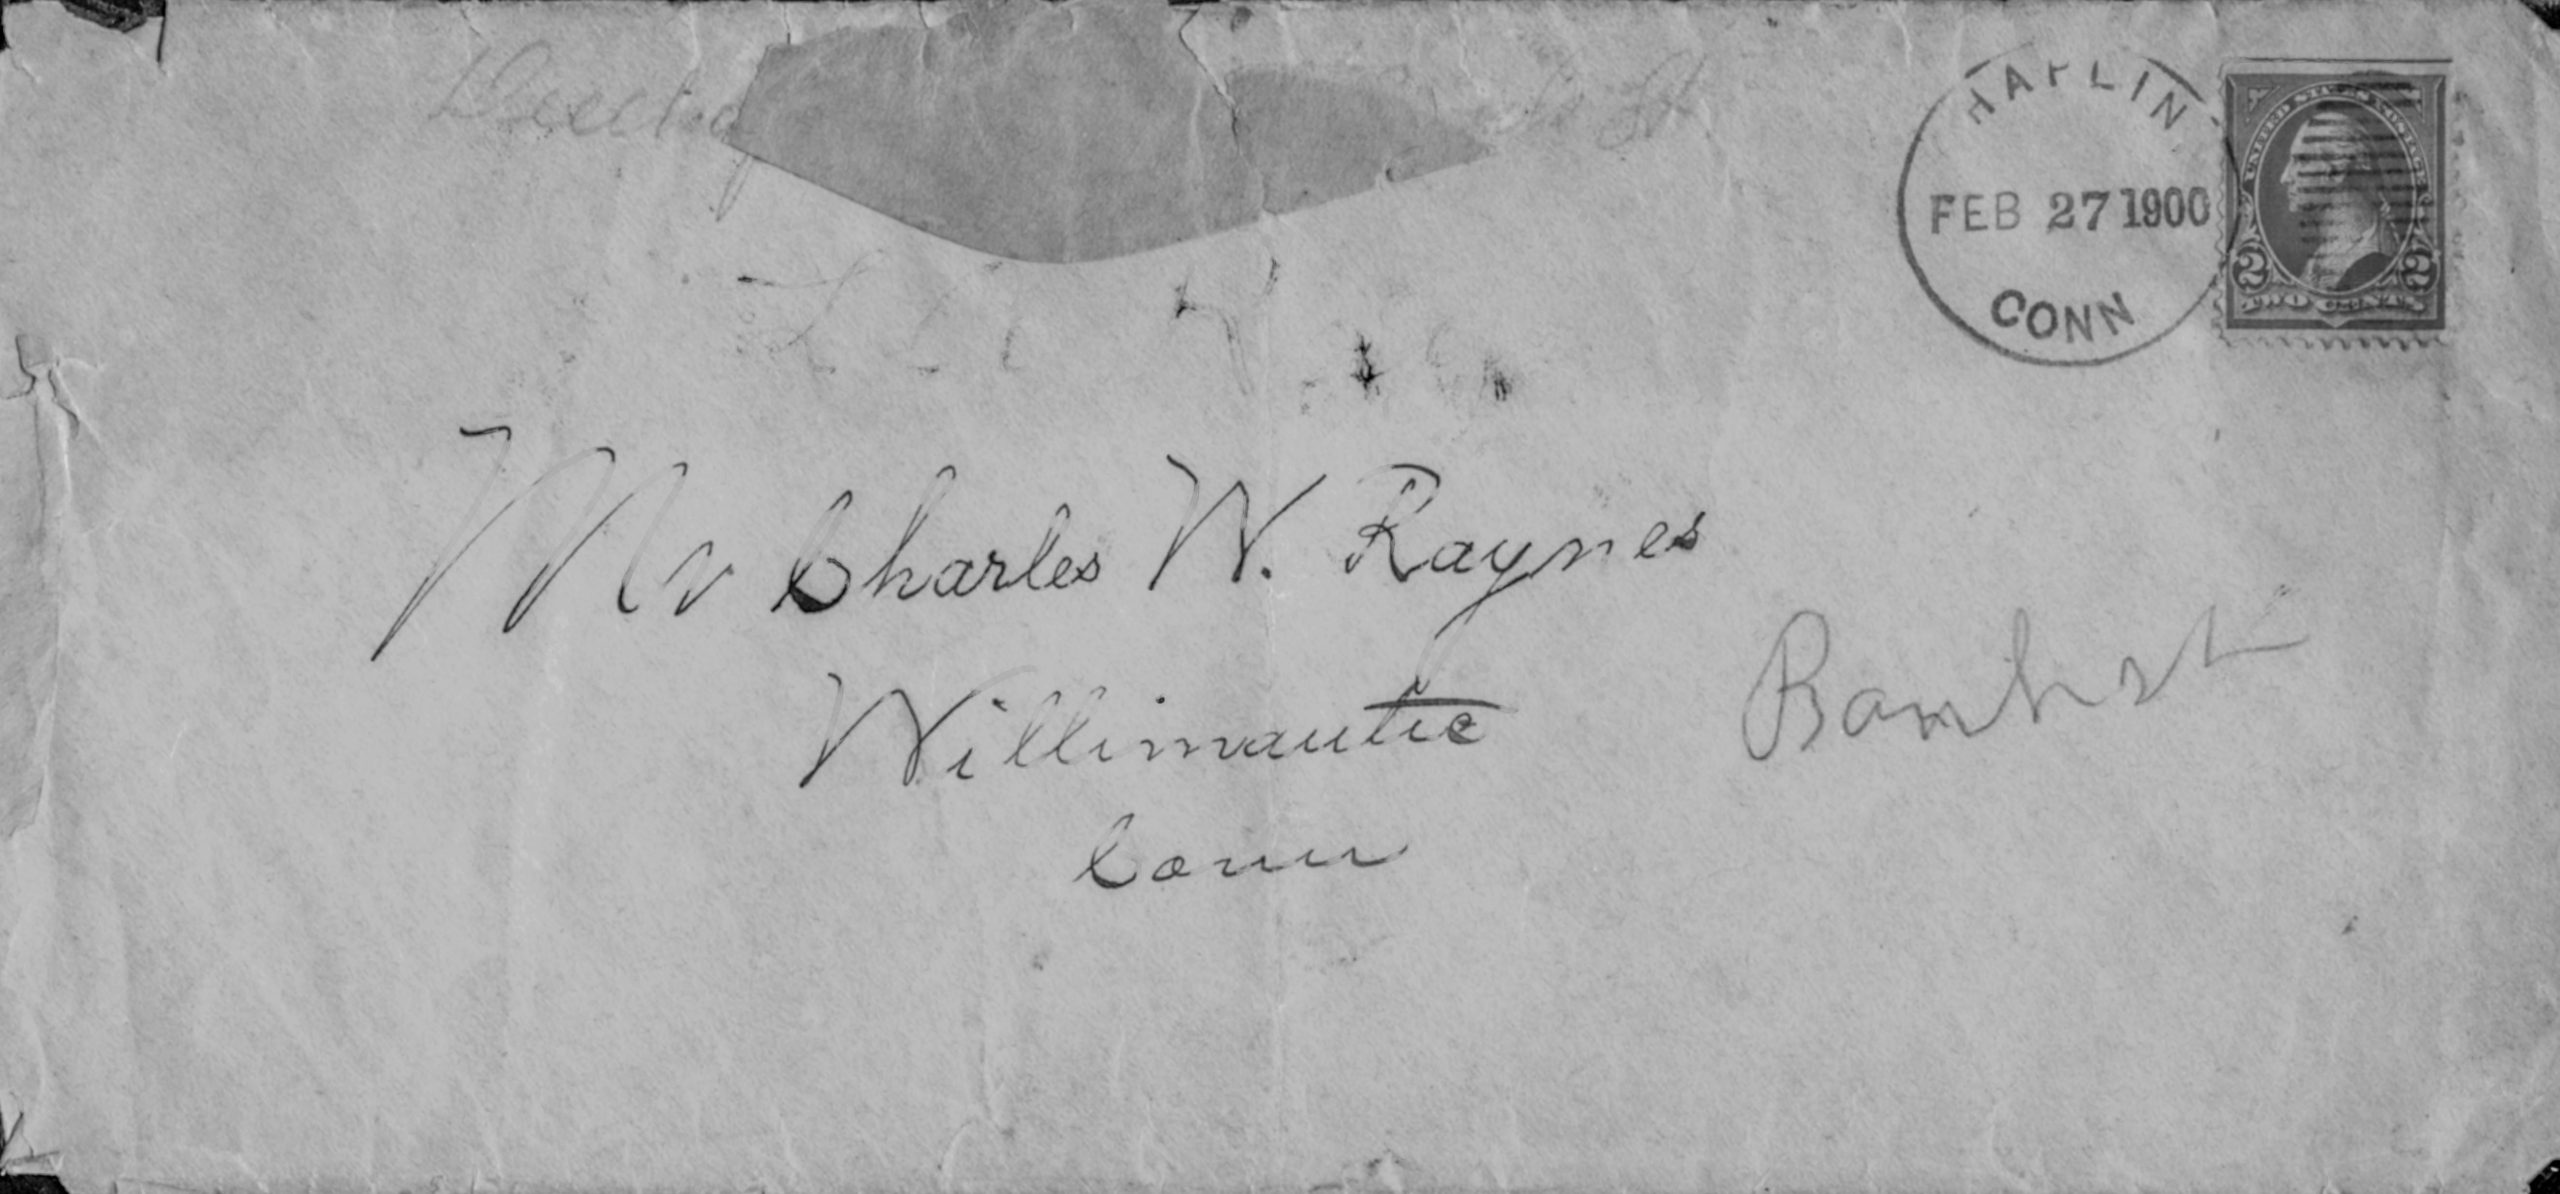 Deed of
St
HAPLIN
FEB 27 1900
CONN
UNITED STATES POSTAGE
2 2
TWO CENTS
Mr Charles W. Raynes
Willimantic
Conn